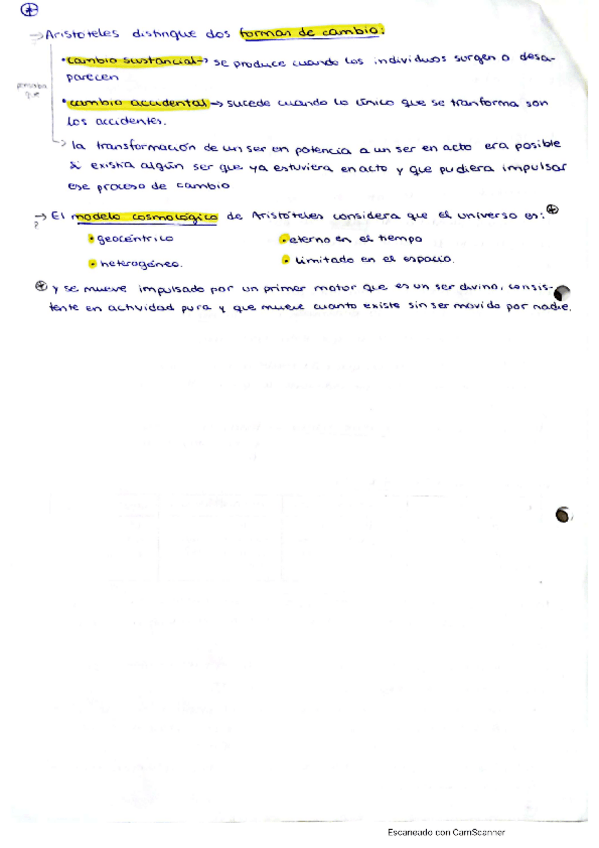 → Aristoteles distingue dos formas de cambio:
• cambio sustancial → se produce cuando los individuos surgen o desa-
parecen
pensaba
que
• cambio accidental → sucede cuando lo único que se tranforma son
los accidentes.
→ la transformación de un ser en potencia a un ser en acto era posible
si existía algún ser que ya estuviera en acto y que pudiera impulsar
ese proceso de cambio
→ El modelo cosmológico de Aristóteles considera que el universo es: *
?
• geocéntrico • eterno en el tiempo
• heterogéneo. • limitado en el espacio.
* y se mueve impulsado por un primer motor que es un ser divino, consis-
tente en actividad pura y que mueve cuanto existe sin ser movido por nadie.
Escaneado con CamScanner